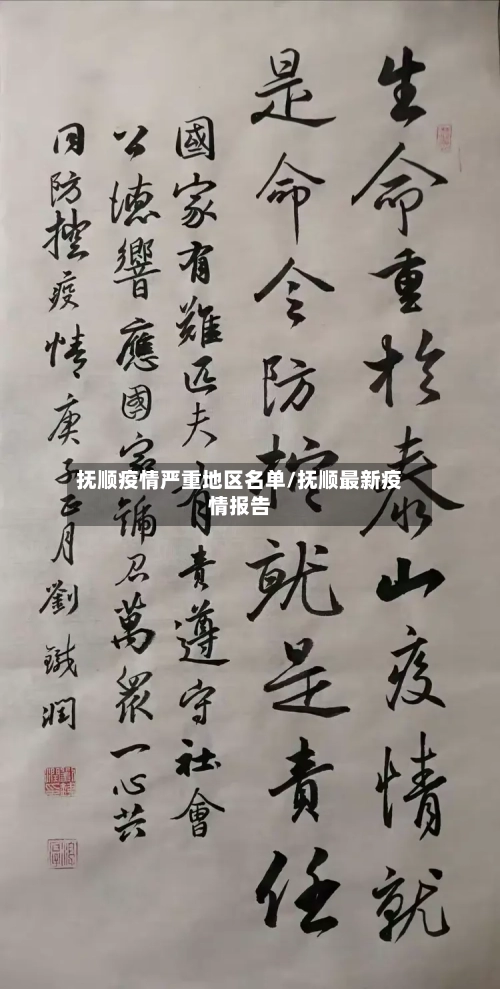 生命重於泰山疫情就
是命令防控就是責任
國家有難匹夫有責遵守社會
公德響應國家號召萬衆一心共
同防控疫情庚子正月劉鐵潤
抚顺疫情严重地区名单/抚顺最新疫
情报告